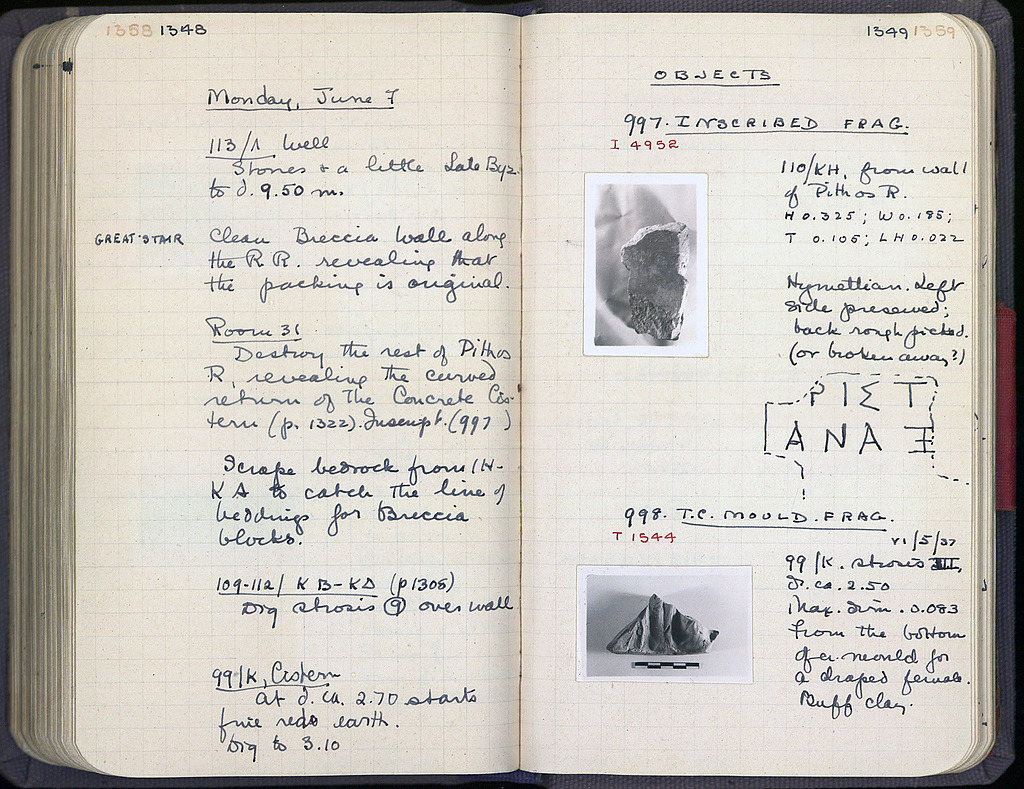 1358 1348
Monday, June 7
113/Λ Well
Stones + a little Late Byz.
to d. 9.50 m.
GREAT STAIR
Clean Breccia Wall along
the R.R. revealing that
the packing is original.
Room 31
Destroy the rest of Pithos
R, revealing the curved
return of the Concrete Cis-
tern (p. 1322). Inscript. (997)
Scrape bedrock from
KΔ to catch the line of
beddings for Breccia
blocks.
109-112/ KB-KΔ (p1305)
Dig strosis 9 over wall
99/K, Cistern
at d. ca. 2.70 starts
fine red earth.
Dig to 3.10
1349 1359
OBJECTS
997. INSCRIBED FRAG.
I 4952
110/KH, from wall
of Pithos R.
H 0.325; W 0.185;
T 0.105; LH 0.022
Hymettian. Left
side preserved;
back rough picked.
(or broken away?)
ΡΙΣΤ
ΑΝΑΞ
998. T.C. MOULD. FRAG.
T 1544
VI/5/37
99/K. strosis III,
d. ca. 2.50
Max. dim. 0.083
From the bottom
of a mould for
a draped female.
Buff clay.